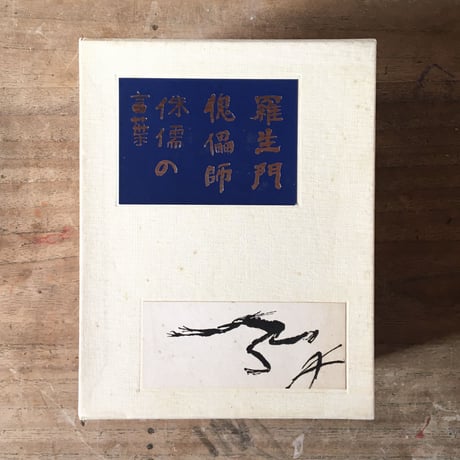 羅生門
傀儡師
侏儒の
言葉